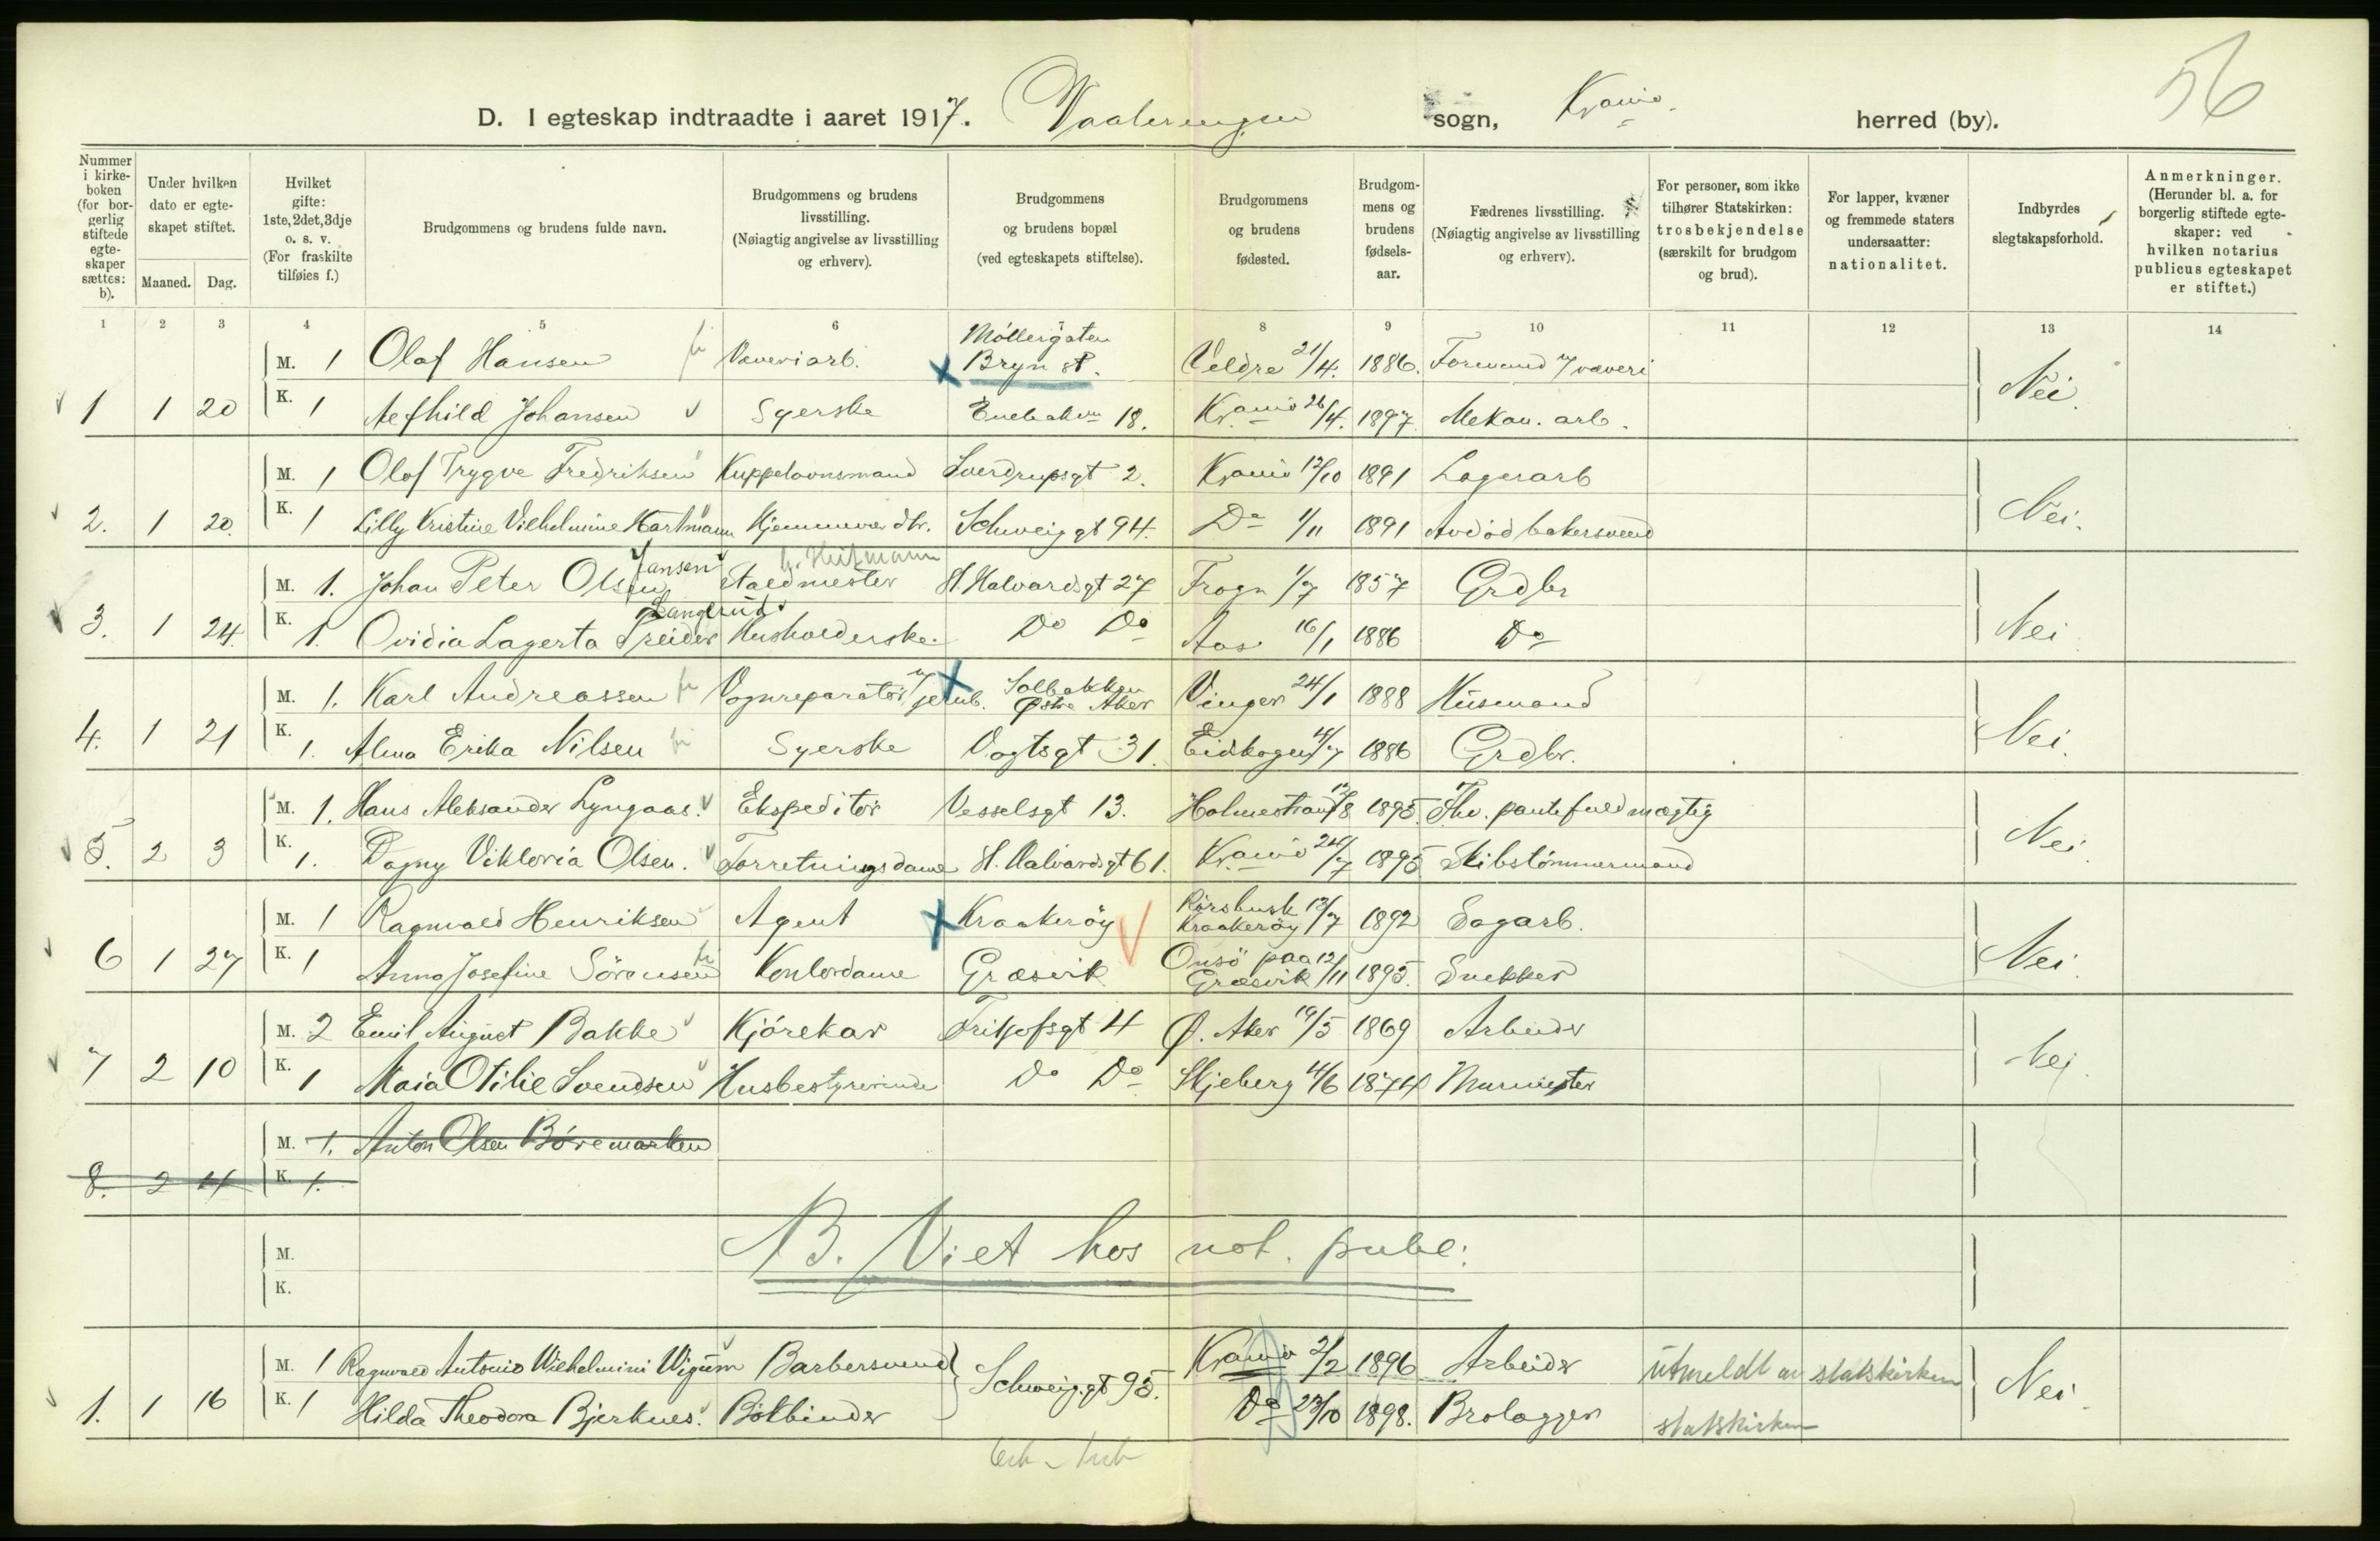 56
D. I egteskap indtraadte i aaret 1917. Vaalerengen sogn, Kr.ania herred (by).
Nummer i kirkeboken (for borgerlig stiftede egteskaper sættes: b).
Under hvilken dato er egteskapet stiftet.
Maaned. Dag.
Hvilket gifte: 1ste, 2det, 3dje o. s. v. (For fraskilte tilføies f.)
Brudgommens og brudens fulde navn.
Brudgommens og brudens livsstilling. (Nøiagtig angivelse av livsstilling og erhverv).
Brudgommens og brudens bopæl (ved egteskapets stiftelse).
Brudgommens og brudens fødested.
Brudgommens og brudens fødselsaar.
Fædrenes livsstilling. (Nøiagtig angivelse av livsstilling og erhverv).
For personer, som ikke tilhører Statskirken: trosbekjendelse (særskilt for brudgom og brud).
For lapper, kvæner og fremmede staters undersaatter: nationalitet.
Indbyrdes slegtskapsforhold.
Anmerkninger. (Herunder bl. a. for borgerlig stiftede egteskaper: ved hvilken notarius publicus egteskapet er stiftet.)
1 2 3 4 5 6 7 8 9 10 11 12 13 14
Möllergaten
M. 1 Olaf Hansen Væveriarb. Bryn st. Veldre 21/4. 1886. Formand v/ væveri
1 1 20 K. 1 Aefhild Johansen Syerske 18. Kr.ania 26/4. 1897 Mekan. arb. Nei.
M. 1 Olaf Trygve Fredriksen Kuppelovnsmand Sverdrupsgt 2. Kr.ania 12/10 1891 Lagerarb
2. 1 20. K. 1 Lilly Kristine Vilhelmine Hartmann Hjemmevær. dtr. Schweiggt 94. Do 1/11 1891 Avdød bakersvend Nei.
Jansen
M. 1. Johan Peter Olsen Staldmester St. Halvardsgt 27 Frogn 1/7 1857 Grdbr
Langerud
3. 1 24. K. 1. Ovidia Lagerta Treider Husholderske Do Do Aas 16/1 1886 Do Nei
M. 1. Karl Andreassen Vognreparatör v/ jernb. Solbakken Östre Aker Vinger 24/1 1888 Husmand
4. 1 21 K. 1. Alma Erika Nilsen Syerske Vogtsgt 31. Eidskogen 1886 Grdbr. Nei.
M. 1. Hans Aleksander Lyngaas. Ekspeditör Vesselsgt 13. Holmestrand 1895. Fhv. pantefuldmægtig
5. 2 3 K. 1. Dagny Viktoria Olsen. Forretningsdame St. Halvardsgt 61. Kr.ania 24/7 1895 Skibstömmermand Nei
M. 1 Ragnvald Henriksen Agent Kraakeröy Rörsbusk Kraakeröy 13/7 1892 Sagarb.
6 1 27 K. 1 Anna Josefine Sörensen Kontordame Græsvik Onsö paa Græsvik 12/11 1895. Snekker Nei.
M. 2 Emil August Bakke Kjörekar Fritjofsgt 4 Ö. Aker 19/5 1869 Arbeider
7 2 10 K. 1 Maia Otilie Svendsen Husbestyrerinde Do Do Skjeberg 4/6 1874 Murmester Nei.
M. 1. Anton Olsen Böremarken
8. 2 4 K. 1.
M.
B. Viet hos not. publ:
K.
M. 1 Ragnvald Antonio Wilhelmini Vigum Barbersvend Schweiggt 95. Kr.ania 2/2 1896 Arbeider utmeldt av statskirken
1. 1 16 K. 1 Hilda Theodora Bjerknes. Bokbinder Do 23/10 1898. Brolægger statskirken Nei.